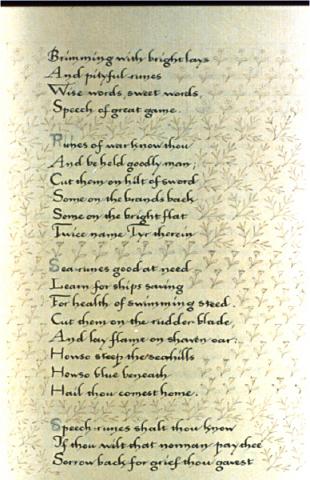 Brimming with bright lays
And pityful runes
Wise words, sweet words,
Speech of great game.
Runes of war know thou
And be held goodly man;
Cut them on hilt of sword
Some on the brands back
Some on the bright flat
Twice name Tyr therein
Sea-runes good at need
Learn for ships saving
For health of swimming steed.
Cut them on the rudder blade,
And lay flame on shaven oar:
Howso steep the seahills
Howso blue beneath
Hail thou comest home.
Speech-runes shalt thou know
If thou wilt that no man pay thee
Sorrow back for grief thou gavest